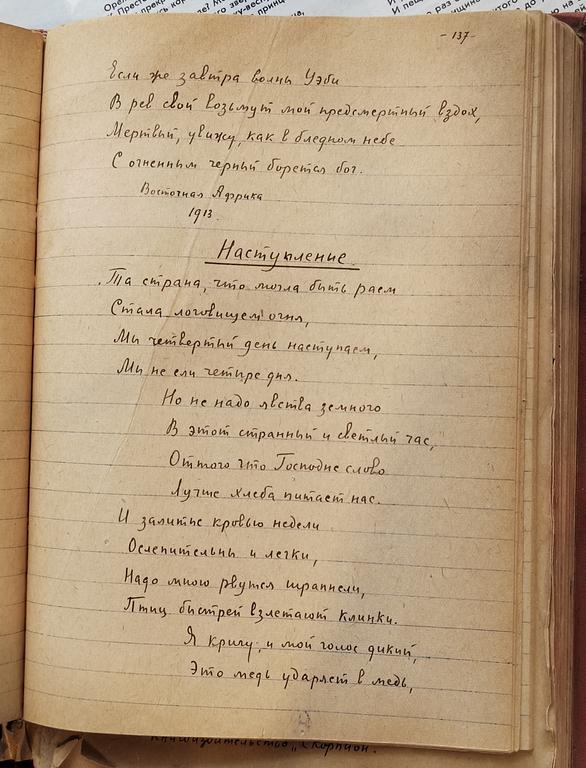 - 137 -
Если же завтра волны Уэби
В рев свой возьмут мой предсмертный вздох,
Мертвый, увижу, как в бледном небе
С огненным черный борется бог.
Восточная Африка
1913.
Наступление.
Та страна, что могла быть раем
Стала логовищем огня,
Мы четвертый день наступаем,
Мы не ели четыре дня.
Но не надо яства земного
В этот странный и светлый час,
Оттого что Господне слово
Лучше хлеба питает нас.
И залитые кровью недели
Ослепительны и легки,
Надо мною рвутся шрапнели,
Птиц быстрей взлетают клинки.
Я кричу, и мой голос дикий,
Это медь ударяет в медь,